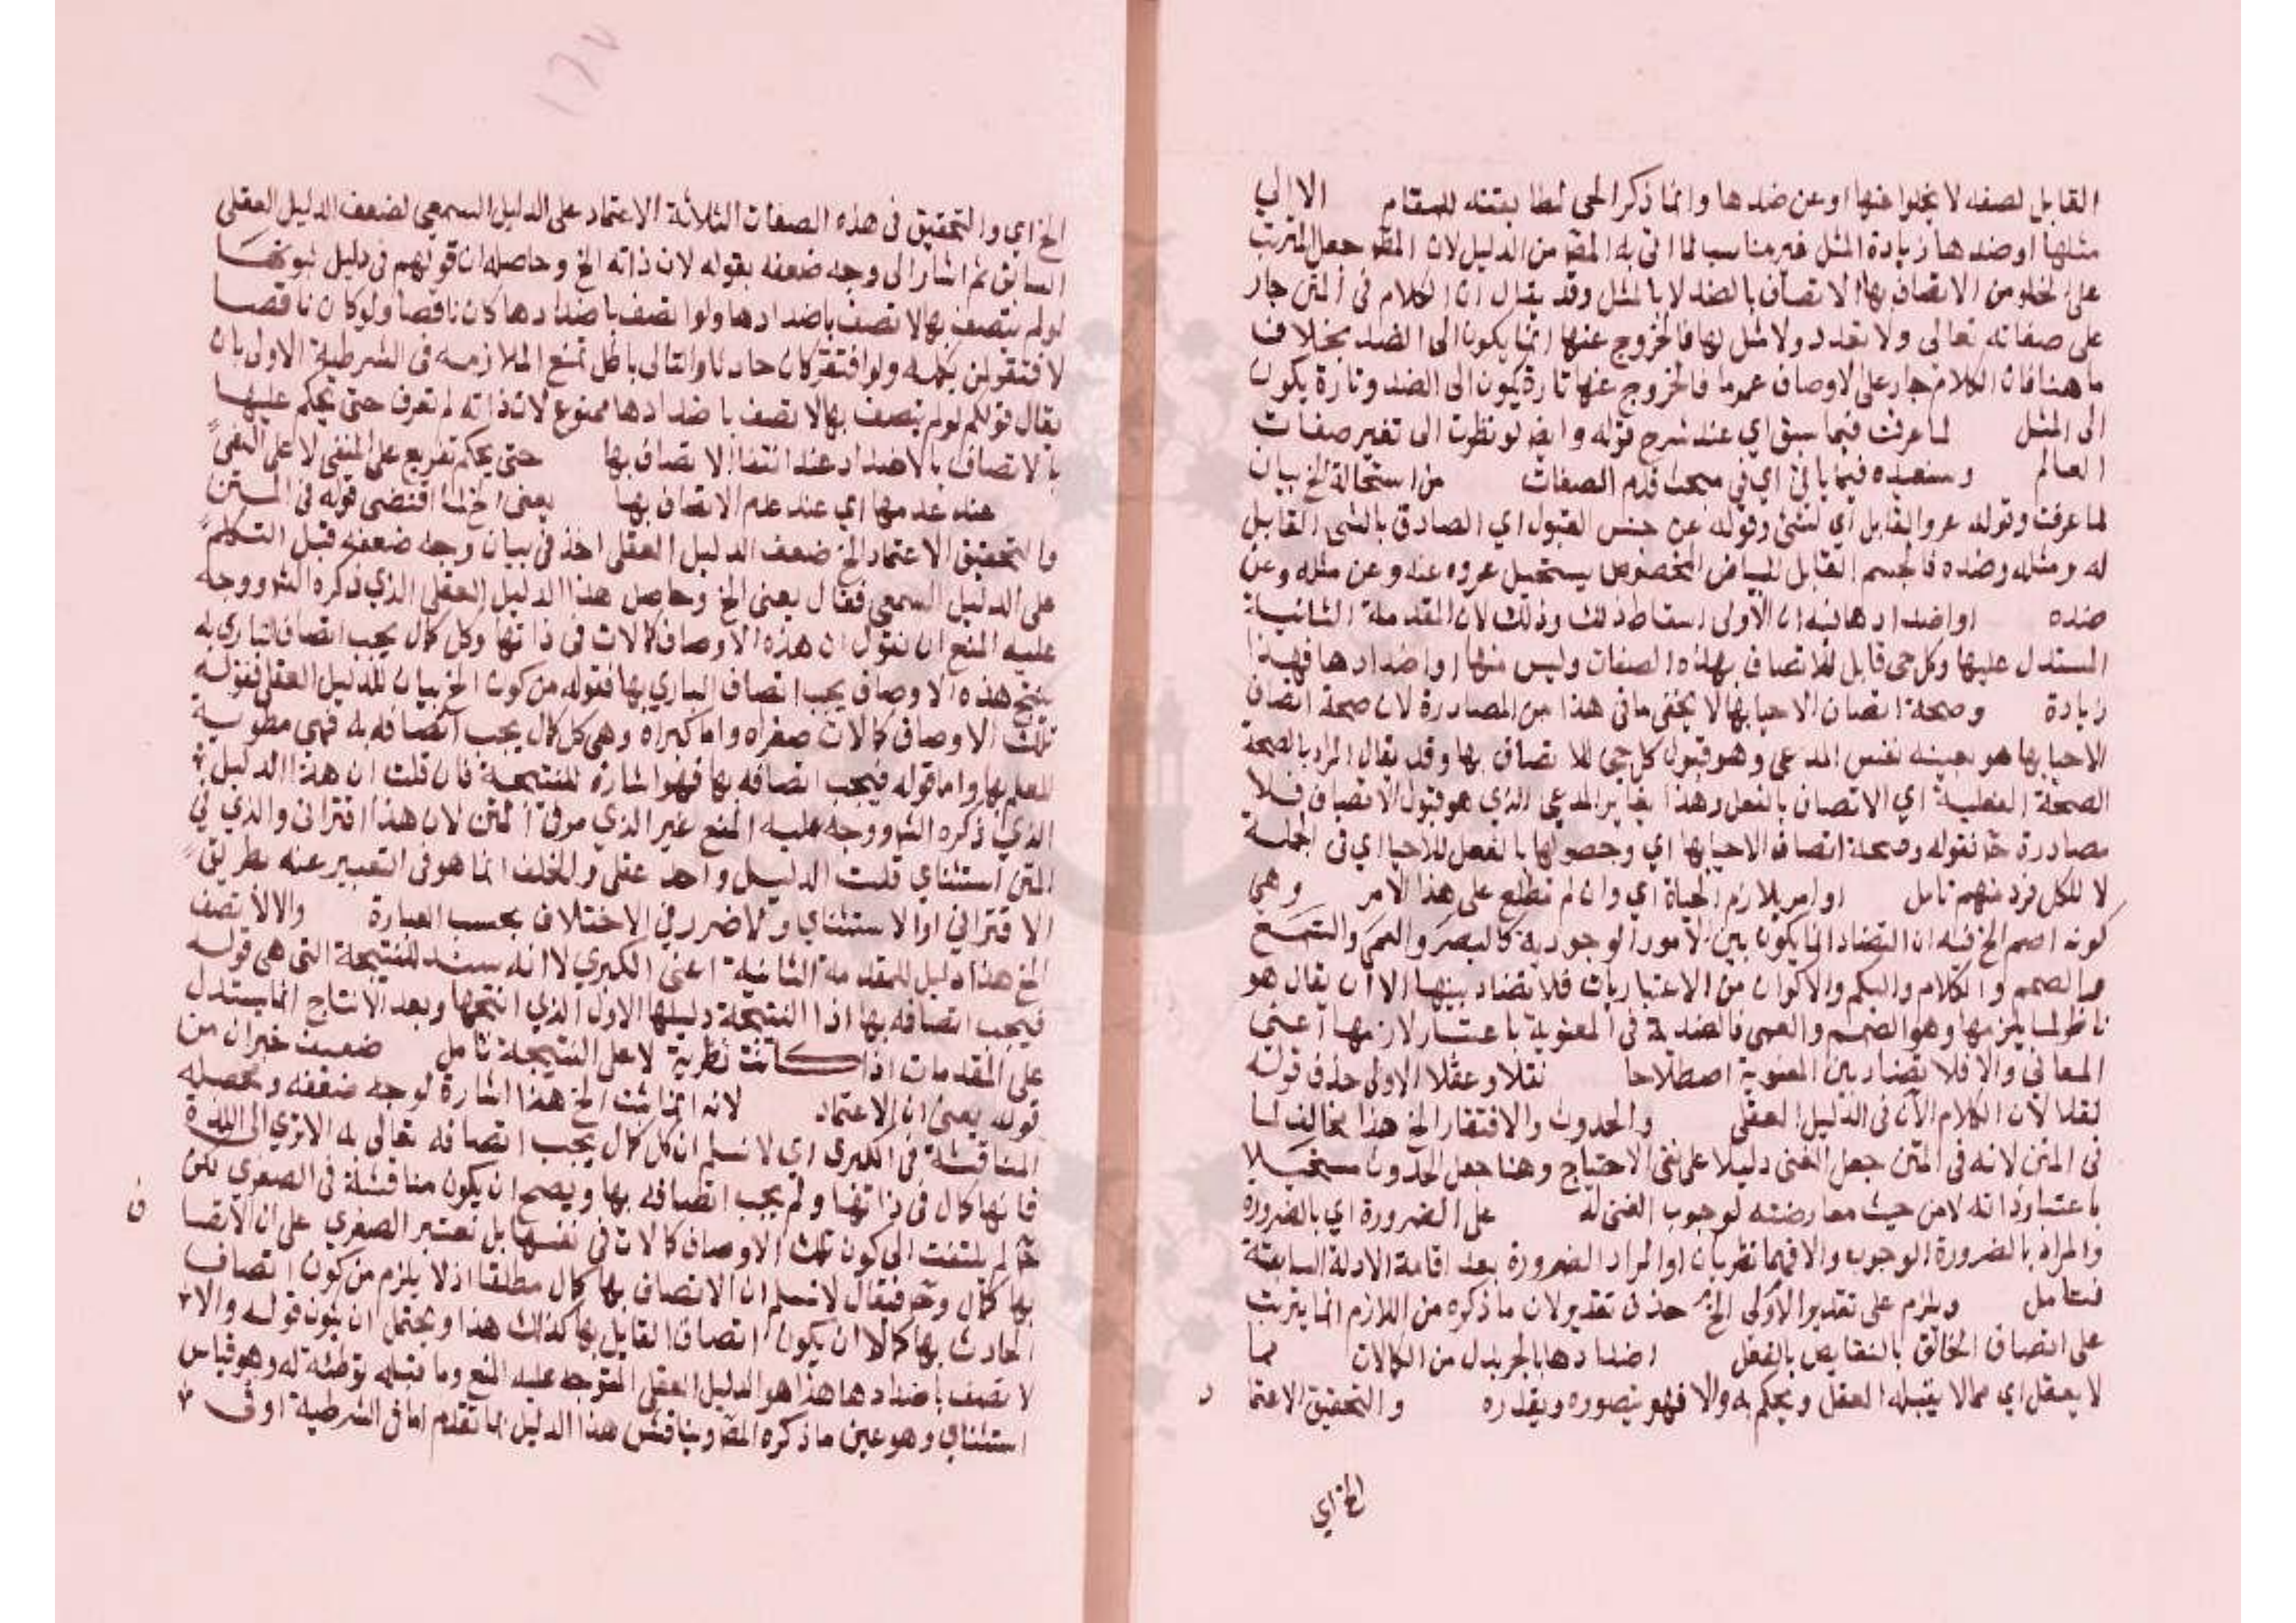 القابل لصفه لا يخلوا عنها او عن ضدها وانما ذكر الحى لمطابقته للمقام الا الي
مثلها او ضدها زيادة المثل غير مناسب لما اتى به المصّ من الدليل لان المصّ جعل المترتب
على الخلو من الاتصاف بها الاتصاف بالضد لا بالمثل وقد يقال ان الكلام فى المتن جار
على صفاته تعالى ولا تعدد ولا مثل لها فالخروج عنها انما يكون الى الضد بخلاف
ما هنا فان الكلام جار على الاوصاف عموما فالخروج عنها تارة يكون الى الضد وتارة يكون
الى المثل لما عرفت فيما سبق اي عند شرح قوله وايضا لو نظرت الى تغير صفات
العالم وسنعيده فيما ياتي اي في مبحث قدم الصفات من استحالة الخ بيان
لما عرفت وقوله عرو القابل اي لشئ وقوله عن جنس القبول اي الصادق بالشى القابل
له ومثله وضده فالجسم القابل للبياض المخصوص يستحيل عروه عنه وعن مثله وعن
ضده او اضدادها فيه ان الاولى اسقاط ذلك وذلك لان المقدمة الثانية
المستدل عليها وكل حى قابل للاتصاف بهذه الصفات وليس منها او اضدادها فهذا
زيادة وصحة اتصاف الاحيا بها لا يخفى ما فى هذا من المصادرة لان صحة اتصاف
الاحيا بها هو بعينه نفس المدعى وهو قبول كل حي للاتصاف بها وقد يقال المراد بالصحة
الصحة الفعلية اي الاتصاف بالفعل وهذا يغاير المدعى الذي هو قبول الاتصاف فلا
مصادرة حّ فقوله وصحة اتصاف الاحيا بها اي وحصولها بالفعل للاحيا اي فى الجملة
لا لكل فرد منهم تامل او امر يلازم الحياة اي وان لم نطلع على هذا الامر وهي
كونه اصم الخ فيه ان التضاد انما يكون بين الامور الوجودية كالبصر والعمى والسمع
والصمم والكلام والبكم والاكوان من الاعتباريات فلا تضاد بينها الا ان يقال هو
ناظر لما يلزمها وهو الصمم والعمى فالضدية فى المعنوية باعتبار لازمها اعنى
المعاني والا فلا تضاد بين المعنوية اصطلاحا نقلا وعقلا الاولى حذف قوله
نقلا لان الكلام الآن فى الدليل العقلى والحدوث والافتقار الخ هذا يخالف لما
فى المتن لانه فى المتن جعل الغنى دليلا على نفى الاحتياج وهنا جعل الحدوث مستحيلا
باعتبار ذاته لا من حيث معارضته لوجوب الغنى له على الضرورة اي بالضرورة
والمراد بالضرورة الوجوب والا فهما نظريان او المراد الضرورة بعد اقامة الادلة السابقة
فتامل ويلزم على تقدير الاولى الخ حذف تقدير لان ما ذكره من اللازم انما يترتب
على اتصاف الخالق بالنقايص بالفعل اضدادها بالجر بدل من الكالات مما
لا يعقل اي مما لا يقبله العقل ويحكم به والا فهو يتصوره ويقدره والتحقيق الاعتما
د
الخ اي
الخ اي والتحقيق فى هذه الصفات الثلاثة الاعتماد على الدليل السمعي لضعف الدليل العقلى
السابق ثم اشار الى وجه ضعفه بقوله لان ذاته الخ وحاصله ان قولهم فى دليل ثبوتها
لو لم يتصف بها لاتصف باضدادها ولو اتصف باضدادها كان ناقصا ولو كان ناقصا
لافتقر لمن يكمله ولو افتقر كان حادثا والتالى باطل تمنع الملازمه فى الشرطية الاولى بان
يقال قولكم لو لم يتصف بها لاتصف باضدادها ممنوع لان ذاته لم تعرف حتى يحكم عليها
بالاتصاف بالاضداد عند انتفا الاتصاف بها حتى يحكم تفريع على المنفى لا على النفى
عند عدمها اي عند عدم الاتصاف بها يعنى الخ لما اقتضى قوله فى المتن
والتحقيق الاعتماد الخ ضعف الدليل العقلى اخذ فى بيان وجه ضعفه قبل التكلم
على الدليل السمعي فقال يعنى الخ وحاصل هذا الدليل العقلى الذي ذكره الشّ ووجه
عليه المنع ان نقول ان هذه الاوصاف كالات فى ذاتها وكل كمال يجب اتصاف الباري به
ينتج هذه الاوصاف يجب اتصاف الباري بها فقوله من كون الخ بيان للدليل العقلى فقوله
تلك الاوصاف كمالات صغراه واما كبراه وهى كل كمال يجب اتصافه به فهى مطوية
للعلم بها واما قوله فيجب اتصافه بها فهو اشارة للنتيجة فان قلت ان هذا الدليل
الذي ذكره الشّ ووجه عليه المنع غير الذي مر فى المتن لان هذا اقترانى والذي فى
المتن استثناي قلت الدليل واحد عقلى والخلف انما هو فى التعبير عنه بطريق
الاقتراني او الاستثناي ولا ضرر في الاختلاف بحسب العبارة والا لاتصف
الخ هذا دليل للمقدمة الثانية اعنى الكبري لا انه سند للنتيجة التى هى قوله
فيجب اتصافه بها اذ النتيجة دليلها الاول الذي انتجها وبعد الانتاج انما يستدل
على المقدمات اذا كانت نظرية لا على النتيجة تامل ضعيف خبر ان من
قوله يعنى ان الاعتماد لانه انما يثبت الخ هذا اشارة لوجه ضعفه ومحصله
المناقشة فى الكبرى اي لا نسلم ان كل كمال يجب اتصافه تعالى به الا ترى الى اللذة
فانها كمال فى ذاتها ولم يجب اتصافه بها ويصح ان يكون مناقشة فى الصغرى لكن
حّ لم يلتفت الى كون تلك الاوصاف كالات في نفسها بل تعتبر الصغري على ان الاتصا
ف
بها كمال وحّ فيقال لا نسلم ان الاتصاف بها كمال مطلقا اذ لا يلزم من كون اتصاف
الحادث بها كمالا ان يكون اتصاف القابل بها كذلك هذا ويحتمل ان يكون قوله والا
لاتصف باضدادها هذا هو الدليل العقلى المتوجه عليه المنع وما قبله توطئة له وهو قياس
استثناي وهو عين ما ذكره المصّ ويناقش هذا الدليل بما تقدم اما فى الشرطية او فى